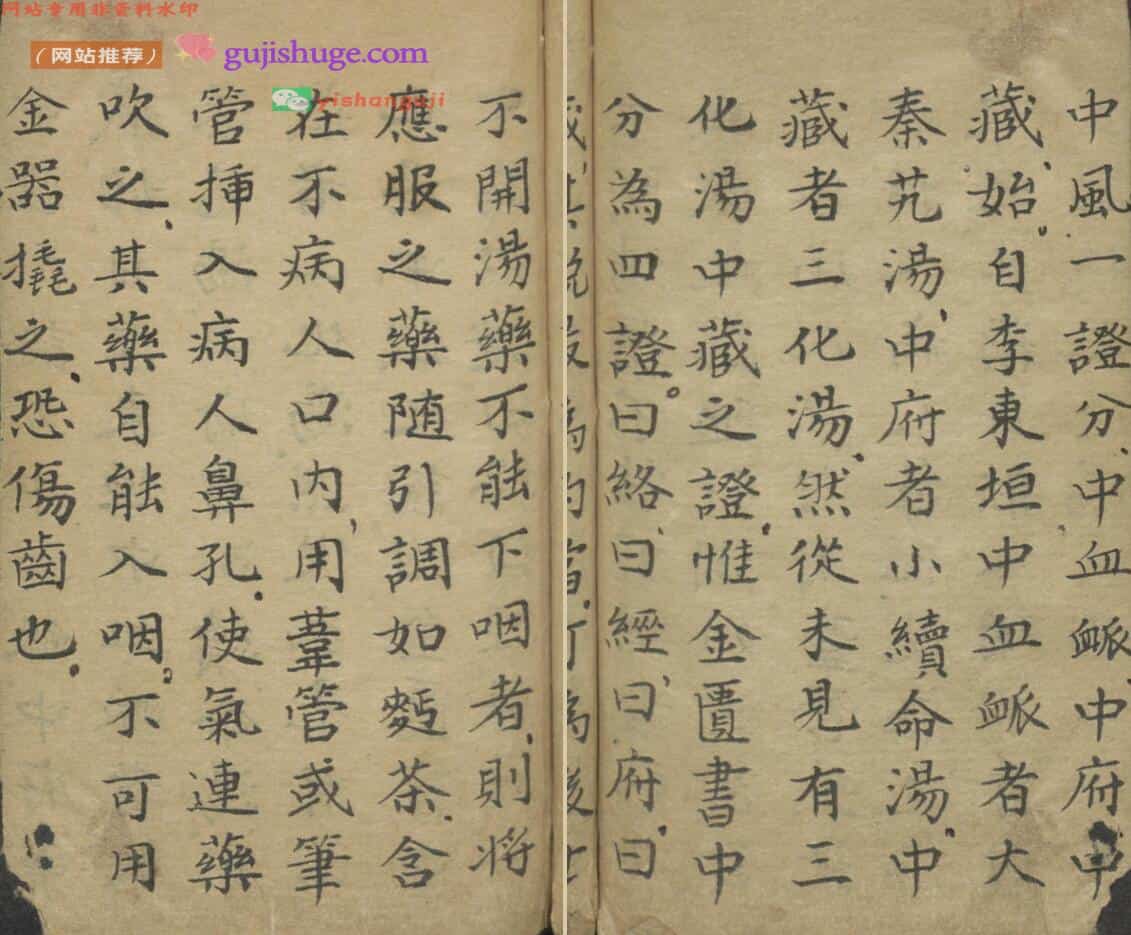 网站专用非资料水印
(网站推荐)
gujishuge.com
yishanguji
中風一證分中血䘑中府中
藏始自李東垣中血䘑者大
秦艽湯中府者小續命湯中
藏者三化湯然從未見有三
化湯中藏之證惟金匱書中
分為四證曰絡曰經曰府曰
不開湯藥不能下咽者則将
應服之藥随引調如麪茶含
在不病人口内用葦管或筆
管挿入病人鼻孔使氣連藥
吹之其藥自能入咽不可用
金器撬之恐傷齒也